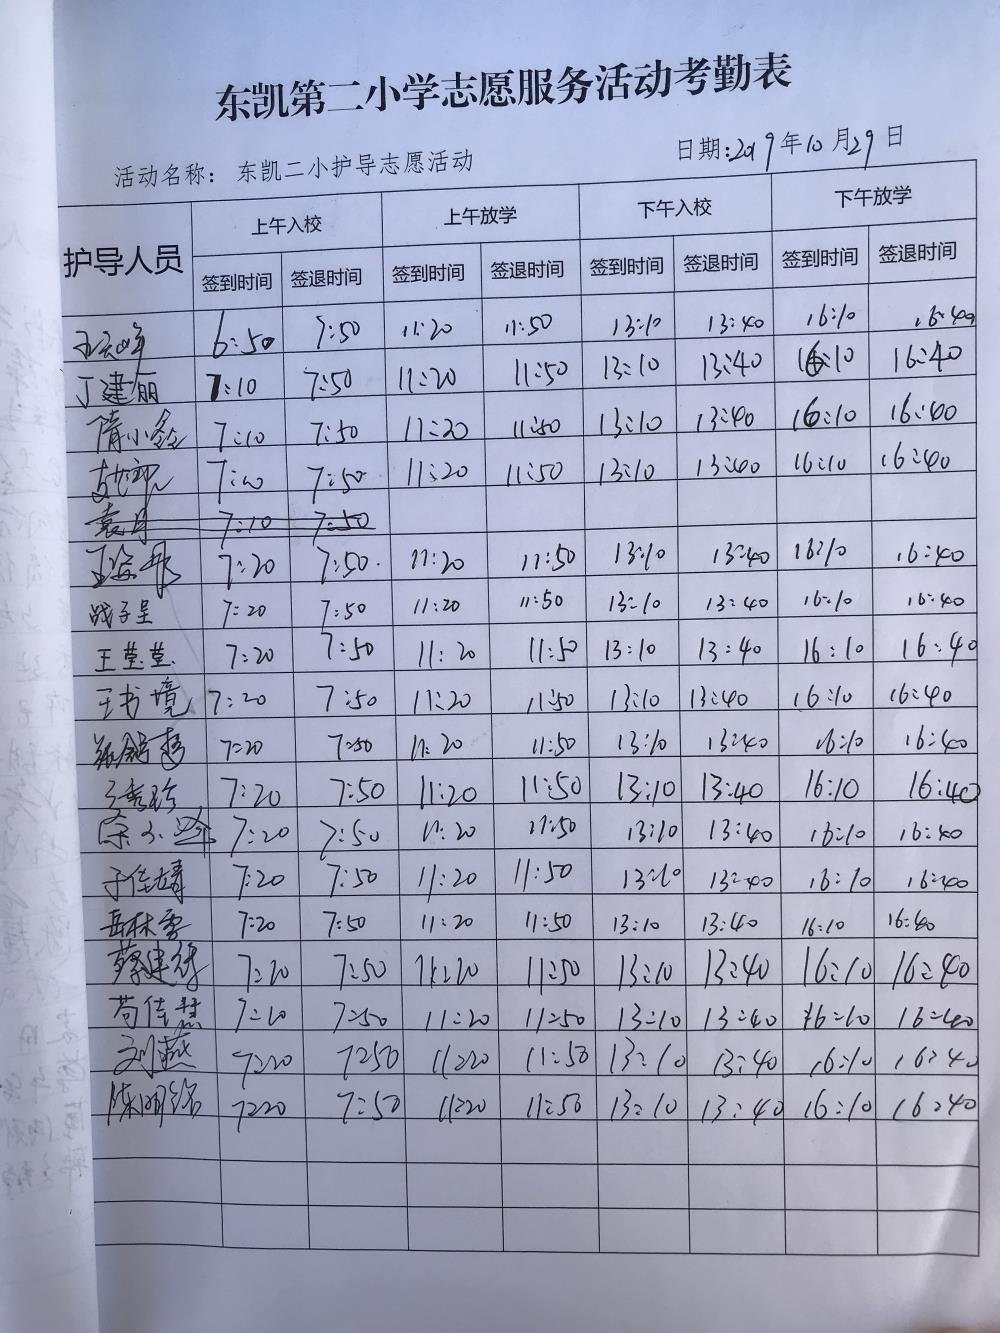 东凯第二小学志愿服务活动考勤表
活动名称: 东凯二小护导志愿活动 日期:2019年10月29日
护导人员 上午入校 上午放学 下午入校 下午放学
签到时间 签退时间 签到时间 签退时间 签到时间 签退时间 签到时间 签退时间
6:50 7:50 11:20 11:50 13:10 13:40 16:10 16:40
丁建丽 7:10 7:50 11:20 11:50 13:10 13:40 16:10 16:40
隋小铃 7:10 7:50 11:20 11:50 13:10 13:40 16:10 16:40
7:10 7:50 11:20 11:50 13:10 13:40 16:10 16:40
袁月 7:10 7:50
7:20 7:50 11:20 11:50 13:10 13:40 16:10 16:40
战子呈 7:20 7:50 11:20 11:50 13:10 13:40 16:10 16:40
王莹莹 7:20 7:50 11:20 11:50 13:10 13:40 16:10 16:40
王书境 7:20 7:50 11:20 11:50 13:10 13:40 16:10 16:40
7:20 7:50 11:20 11:50 13:10 13:40 16:10 16:40
7:20 7:50 11:20 11:50 13:10 13:40 16:10 16:40
7:20 7:50 11:20 11:50 13:10 13:40 16:10 16:40
于佳靖 7:20 7:50 11:20 11:50 13:10 13:40 16:10 16:40
岳林雪 7:20 7:50 11:20 11:50 13:10 13:40 16:10 16:40
7:20 7:50 11:20 11:50 13:10 13:40 16:10 16:40
苟佳慧 7:20 7:50 11:20 11:50 13:10 13:40 16:10 16:40
刘燕 7:20 7:50 11:20 11:50 13:10 13:40 16:10 16:40
陈明铭 7:20 7:50 11:20 11:50 13:10 13:40 16:10 16:40